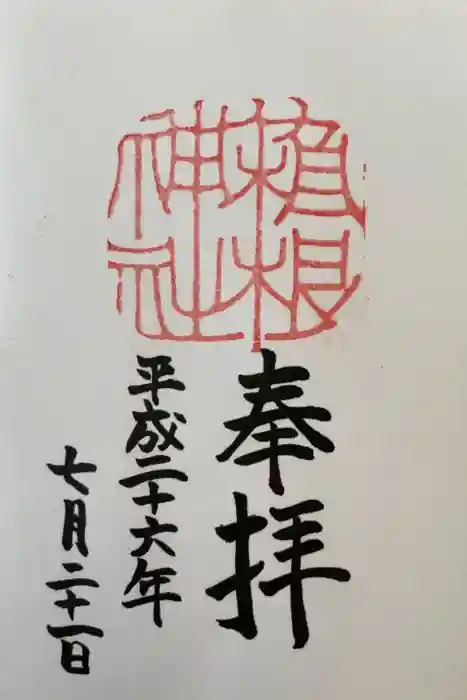 植根
神社
奉拝
平成二十六年
七月二十一日